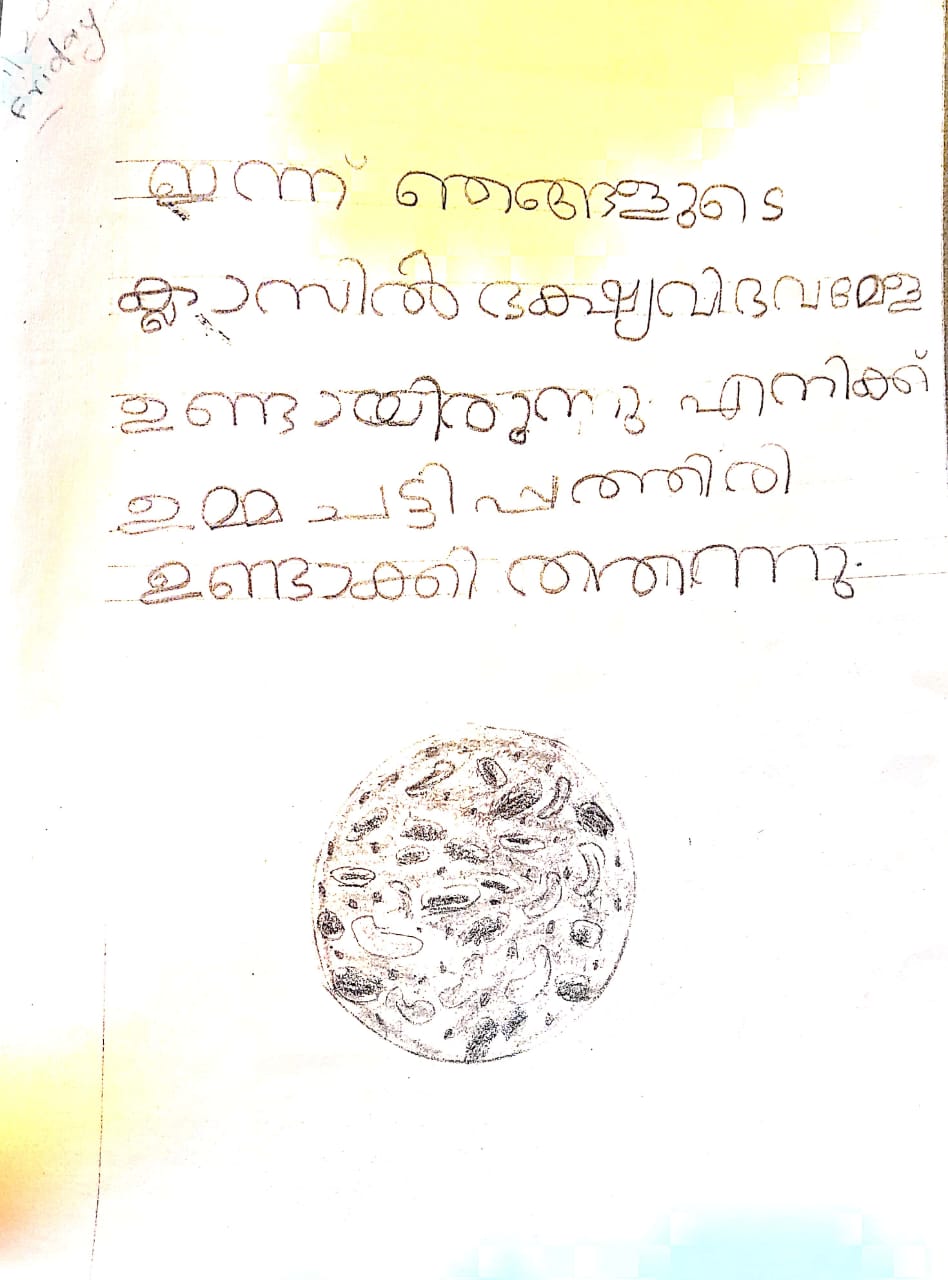 Friday
ഇന്ന് ഞങ്ങളുടെ
ക്ലാസിൽ ഭക്ഷ്യവിഭവമേള
ഉണ്ടായിരുന്നു എനിക്ക്
ഉമ്മ ചട്ടിപ്പത്തിരി
ഉണ്ടാക്കി തന്നു.